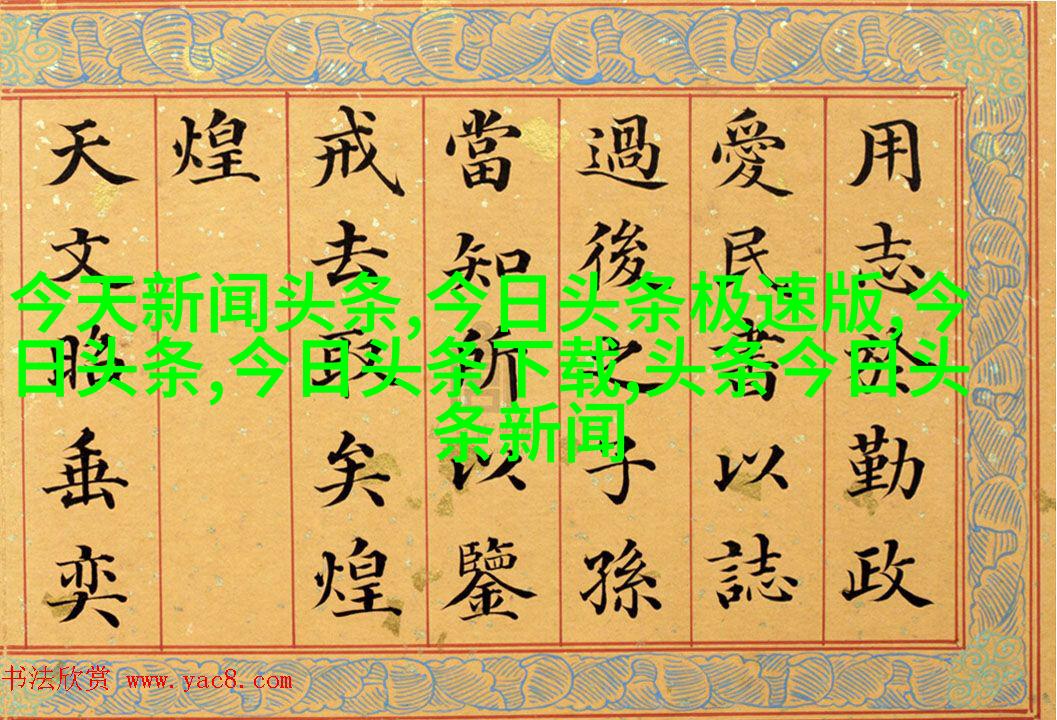 用志於勤政
愛民書以誌
過後之子孫
當知所以鑒
戒去取矣煌
煌
天文昭垂奕
今天新闻头条,今日头条极速版,今
日头条,今日头条下载,头条今日头
条新闻
书法欣赏 www.yac8.com